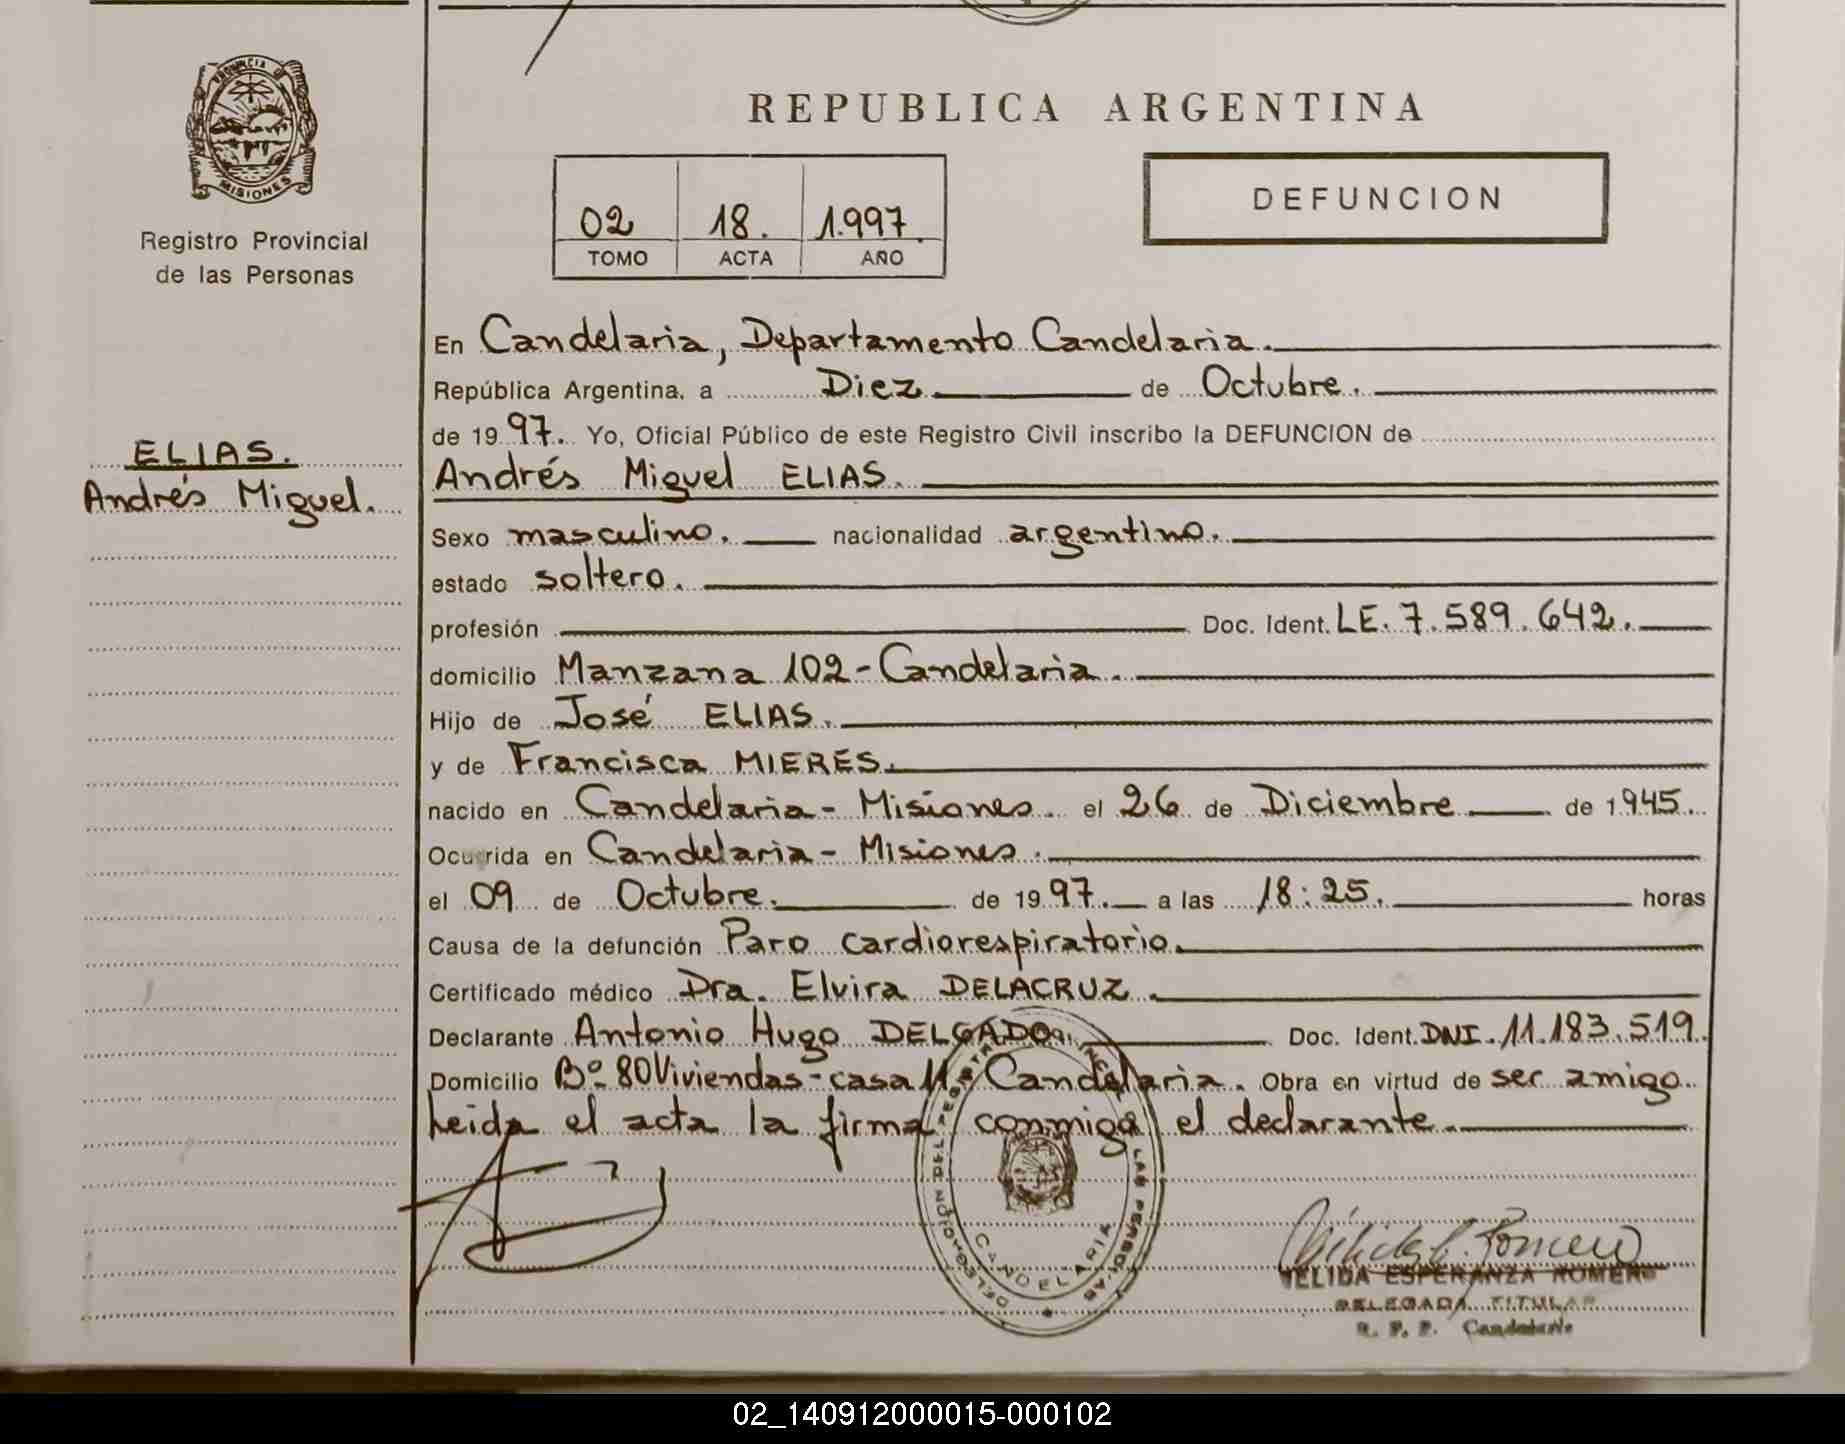 PROVINCIA DE
MISIONES
Registro Provincial
de las Personas
ELIAS.
Andrés Miguel.
REPUBLICA ARGENTINA
02 18. 1.997
TOMO ACTA AÑO
DEFUNCION
En Candelaria, Departamento Candelaria.
República Argentina, a Diez de Octubre.
de 19 97. Yo, Oficial Público de este Registro Civil inscribo la DEFUNCION de
Andrés Miguel ELIAS.
Sexo masculino. nacionalidad argentino.
estado soltero.
profesión Doc. Ident. LE. 7.589.642.
domicilio Manzana 102 - Candelaria.
Hijo de José ELIAS.
y de Francisca MIERES.
nacido en Candelaria - Misiones el 26 de Diciembre de 1945.
Ocurrida en Candelaria - Misiones.
el 09 de Octubre. de 19 97. a las 18:25. horas
Causa de la defunción Paro cardiorespiratorio.
Certificado médico Dra. Elvira DELACRUZ.
Declarante Antonio Hugo DELGADO. Doc. Ident. DNI. 11.183.519.
Domicilio Bº 80 Viviendas - casa 11 - Candelaria. Obra en virtud de ser amigo.
Leida el acta la firma conmigo el declarante.
CANDELARIA
NELIDA ESPERANZA ROMERO
DELEGADA TITULAR
R. P. P. Candelaria
02_140912000015-000102